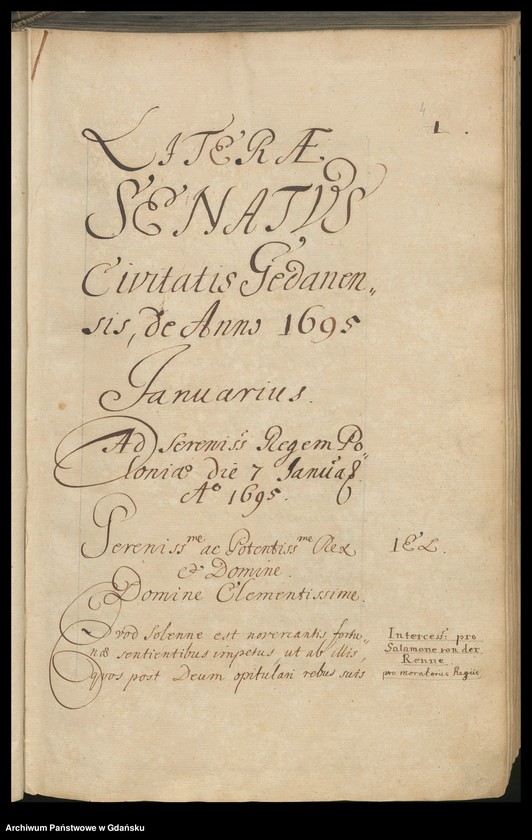 4
1.
LITERÆ
SENATVS
Civitatis Gedanen„
sis, de Anno 1695
Januarius.
Ad Sereniss. Regem Po„
loniæ die 7 Januar.
Aº 1695.
Sereniss.me ac Potentiss.me Rex
& Domine.
Domine Clementissime.
Quod solenne est novercantis fortu„
næ sentientibus impetus ut ab illis,
quos post Deum opitulari rebus suis
Intercess: pro
Salamone von der
Renne
pro moratorius Regiis
Archiwum Państwowe w Gdańsku